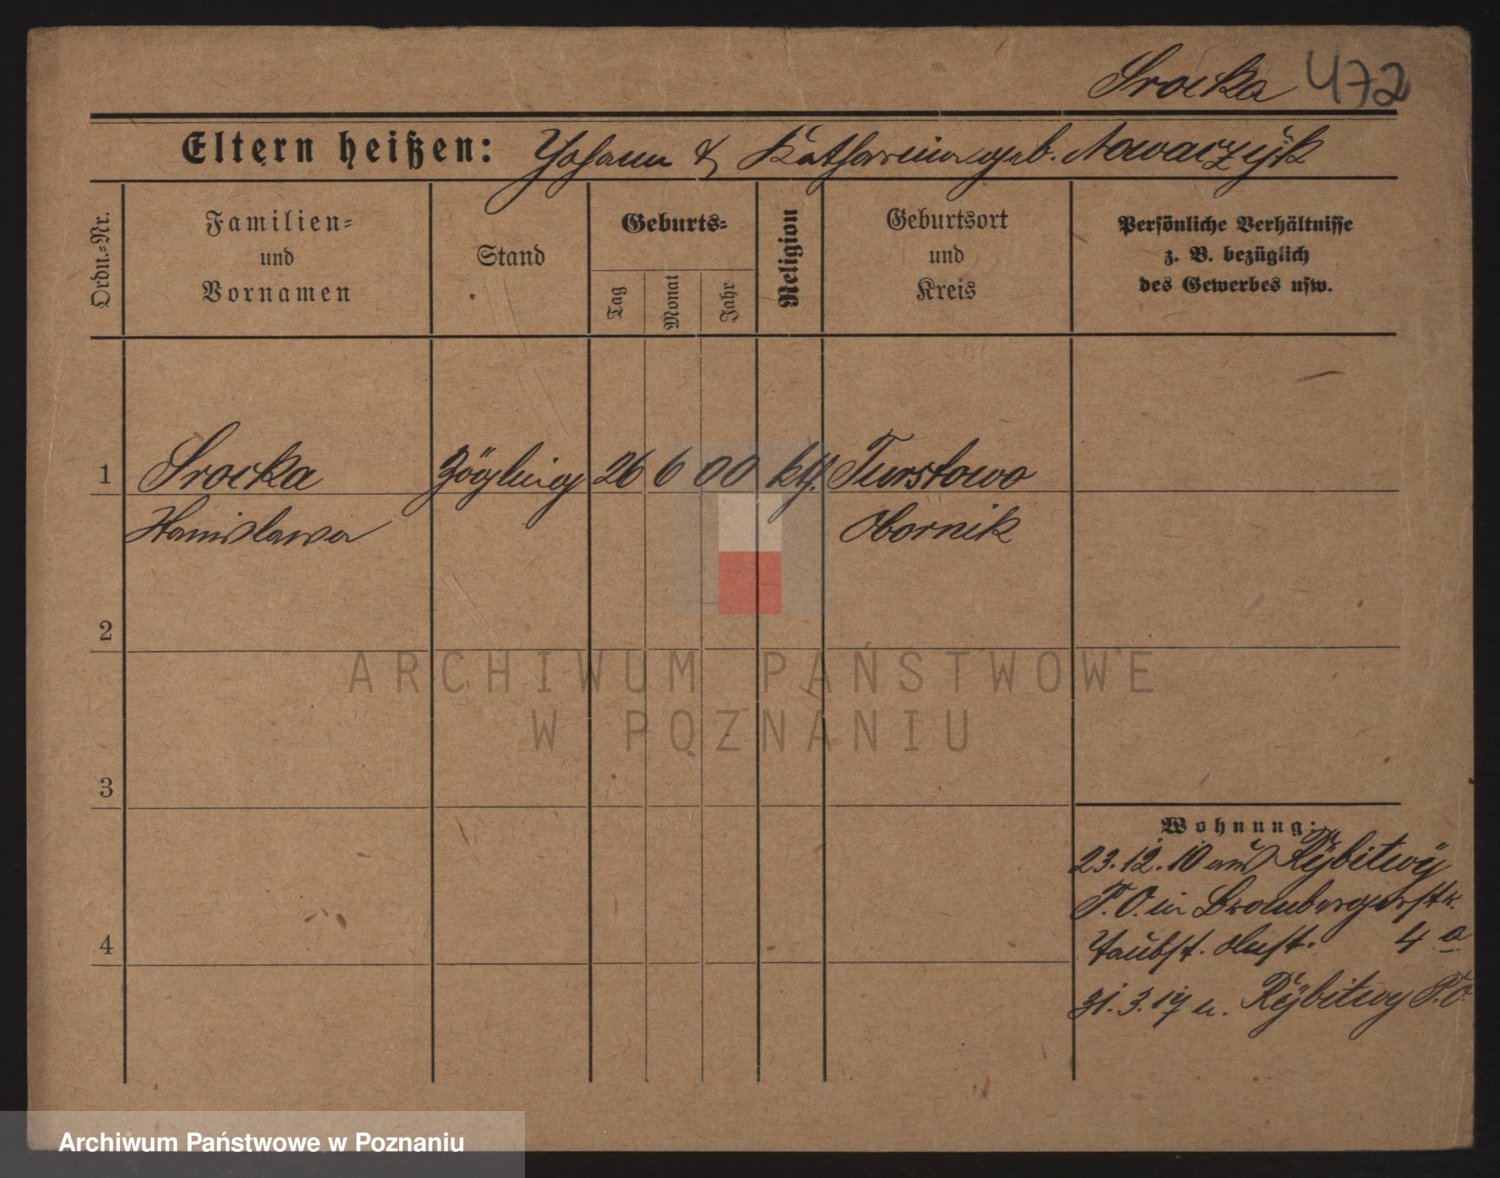 Srocka 472
Eltern heißen: Johann & Katharina geb. Nowarzÿk
Ordn.-Nr.
Familien-
und
Vornamen
Stand
Geburts-
Tag
Monat
Jahr
Religion
Geburtsort
und
Kreis
Persönliche Verhältnisse
z. B. bezüglich
des Gewerbes usw.
1 Srocka Zögling 26 6 00 kth. Turstowo
Stanislawa Obornik
2
ARCHIWUM PAŃSTWOWE
W POZNANIU
3
Wohnung:
23.12.10 aus Rÿbitwÿ
P.O. in Brombergerstr.
4
Taubst. Anst. 4 a
31.3.17 n. Rÿbitwy P.O.
Archiwum Państwowe w Poznaniu